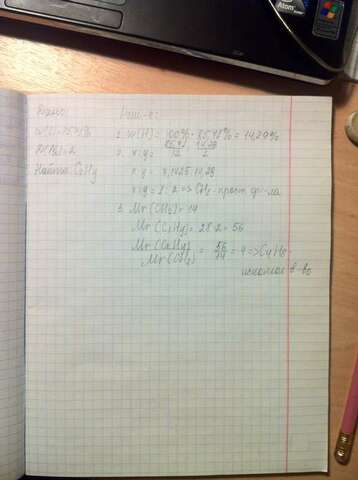 Дано:
W(C)=85,71%
D(N2)=2
Найти CxHy
Реш-е:
1. W(H) = 100% - 85,71% = 14,29%
2. x:y = 85,71/12 : 14,29/1
x:y = 7,1425:14,29
x:y = 1:2 => CH2 - прост. ф-ла
3. Mr(CH2) = 14
Mr(CxHy) = 28·2 = 56
Mr(CxHy)/Mr(CH2) = 56/14 = 4 => C4H8 -
искомое в-во
Atom